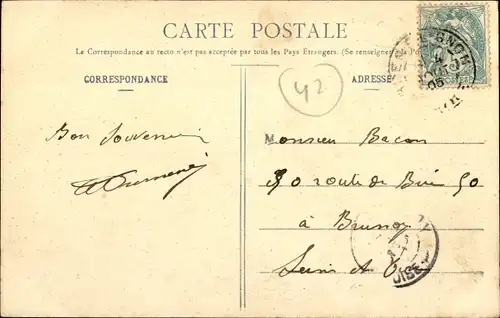 CARTE POSTALE
La Correspondance au recto n'est pas acceptée par tous les Pays Etrangers. (Se renseigner à la Po
CORRESPONDANCE
ADRESSE
42
Bon Souvenir
Monsieur Bacon
50 route de 50
à Brunoy
Seine et Oise